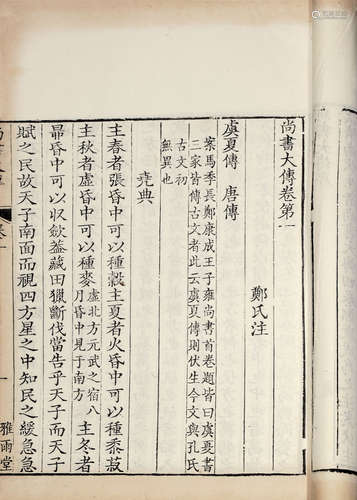 尚書大傳卷第一
鄭氏注
虞夏傳 唐傳
案馬季長鄭康成王子雍尚書首卷題皆曰虞夏書
三家皆傳古文者此云虞夏傳則伏生今文與孔氏
古文初
無異也
堯典
主春者張昏中可以種穀主夏者火昏中可以種黍菽
主秋者虛昏中可以種麥虛北方元武之宿八
月昏中見于南方主冬者
昴昏中可以收斂葢藏田獵斷伐當告乎天子而天子
賦之民故天子南面而視四方星之中知民之緩急急
雅雨堂